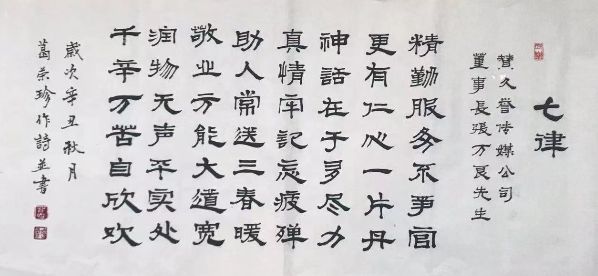 七律
赞久誉传媒公司
董事長張万良先生
精勤服务不争官
更有仁心一片丹
神話在于多尽力
真情牢記忘疲殚
助人常送三春暖
敬业方能大道宽
润物无声平实处
千辛万苦自欣欢
歲次辛丑秋月
葛荣珍作詩並書